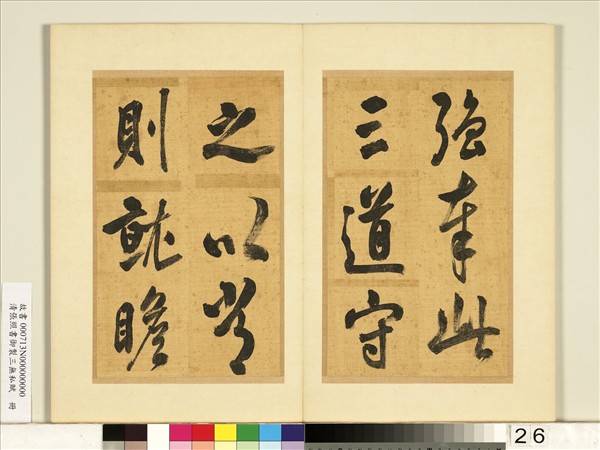 強奉此
三道守
之以常
則就瞻
故書 000713N000000000
清張照書御製三無私賦 冊
26